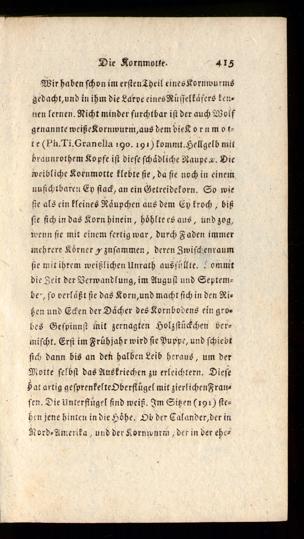 Die Kornmotte. 415
Wir haben schon im ersten Theil eines Kornwurms
gedacht, und in ihm die Larve eines Rüsselkäfers ken-
nen lernen. Nicht minder furchtbar ist der auch Wolf
genannte weiße Kornwurm, aus dem die Kornmot-
te (Ph. Ti. Granella 190. 191) kommt. Hellgelb mit
braunrothem Kopfe ist diese schädliche Raupe x. Die
weibliche Kornmotte klebte sie, da sie noch in einem
unsichtbaren Ey stack, an ein Getreidekorn. So wie
sie als ein kleines Räupchen aus dem Ey kroch, biß
sie sich in das Korn hinein, höhlte es aus, und zog,
wenn sie mit einem fertig war, durch Faden immer
mehrere Körner y zusammen, deren Zwischenraum
sie mit ihrem weißlichen Unrath ausfüllte. Kommt
die Zeit der Verwandlung, im August und Septem-
ber, so verläßt sie das Korn, und macht sich in den Ri-
ßen und Ecken der Dächer des Kornbodens ein gro-
bes Gespinnst mit zernagten Holzstückchen ver-
mischt. Erst im Frühjahr wird sie Puppe, und schiebt
sich dann bis an den halben Leib heraus, um der
Motte selbst das Auskriechen zu erleichtern. Diese
hat artig gesprenkelte Oberflügel mit zierlichen Fran-
sen. Die Unterflügel sind weiß. Im Sitzen (191) ste-
hen jene hinten in die Höhe. Ob der Calander, der in
Nord-Amerika, und der Kornwurm, der in der ehe-